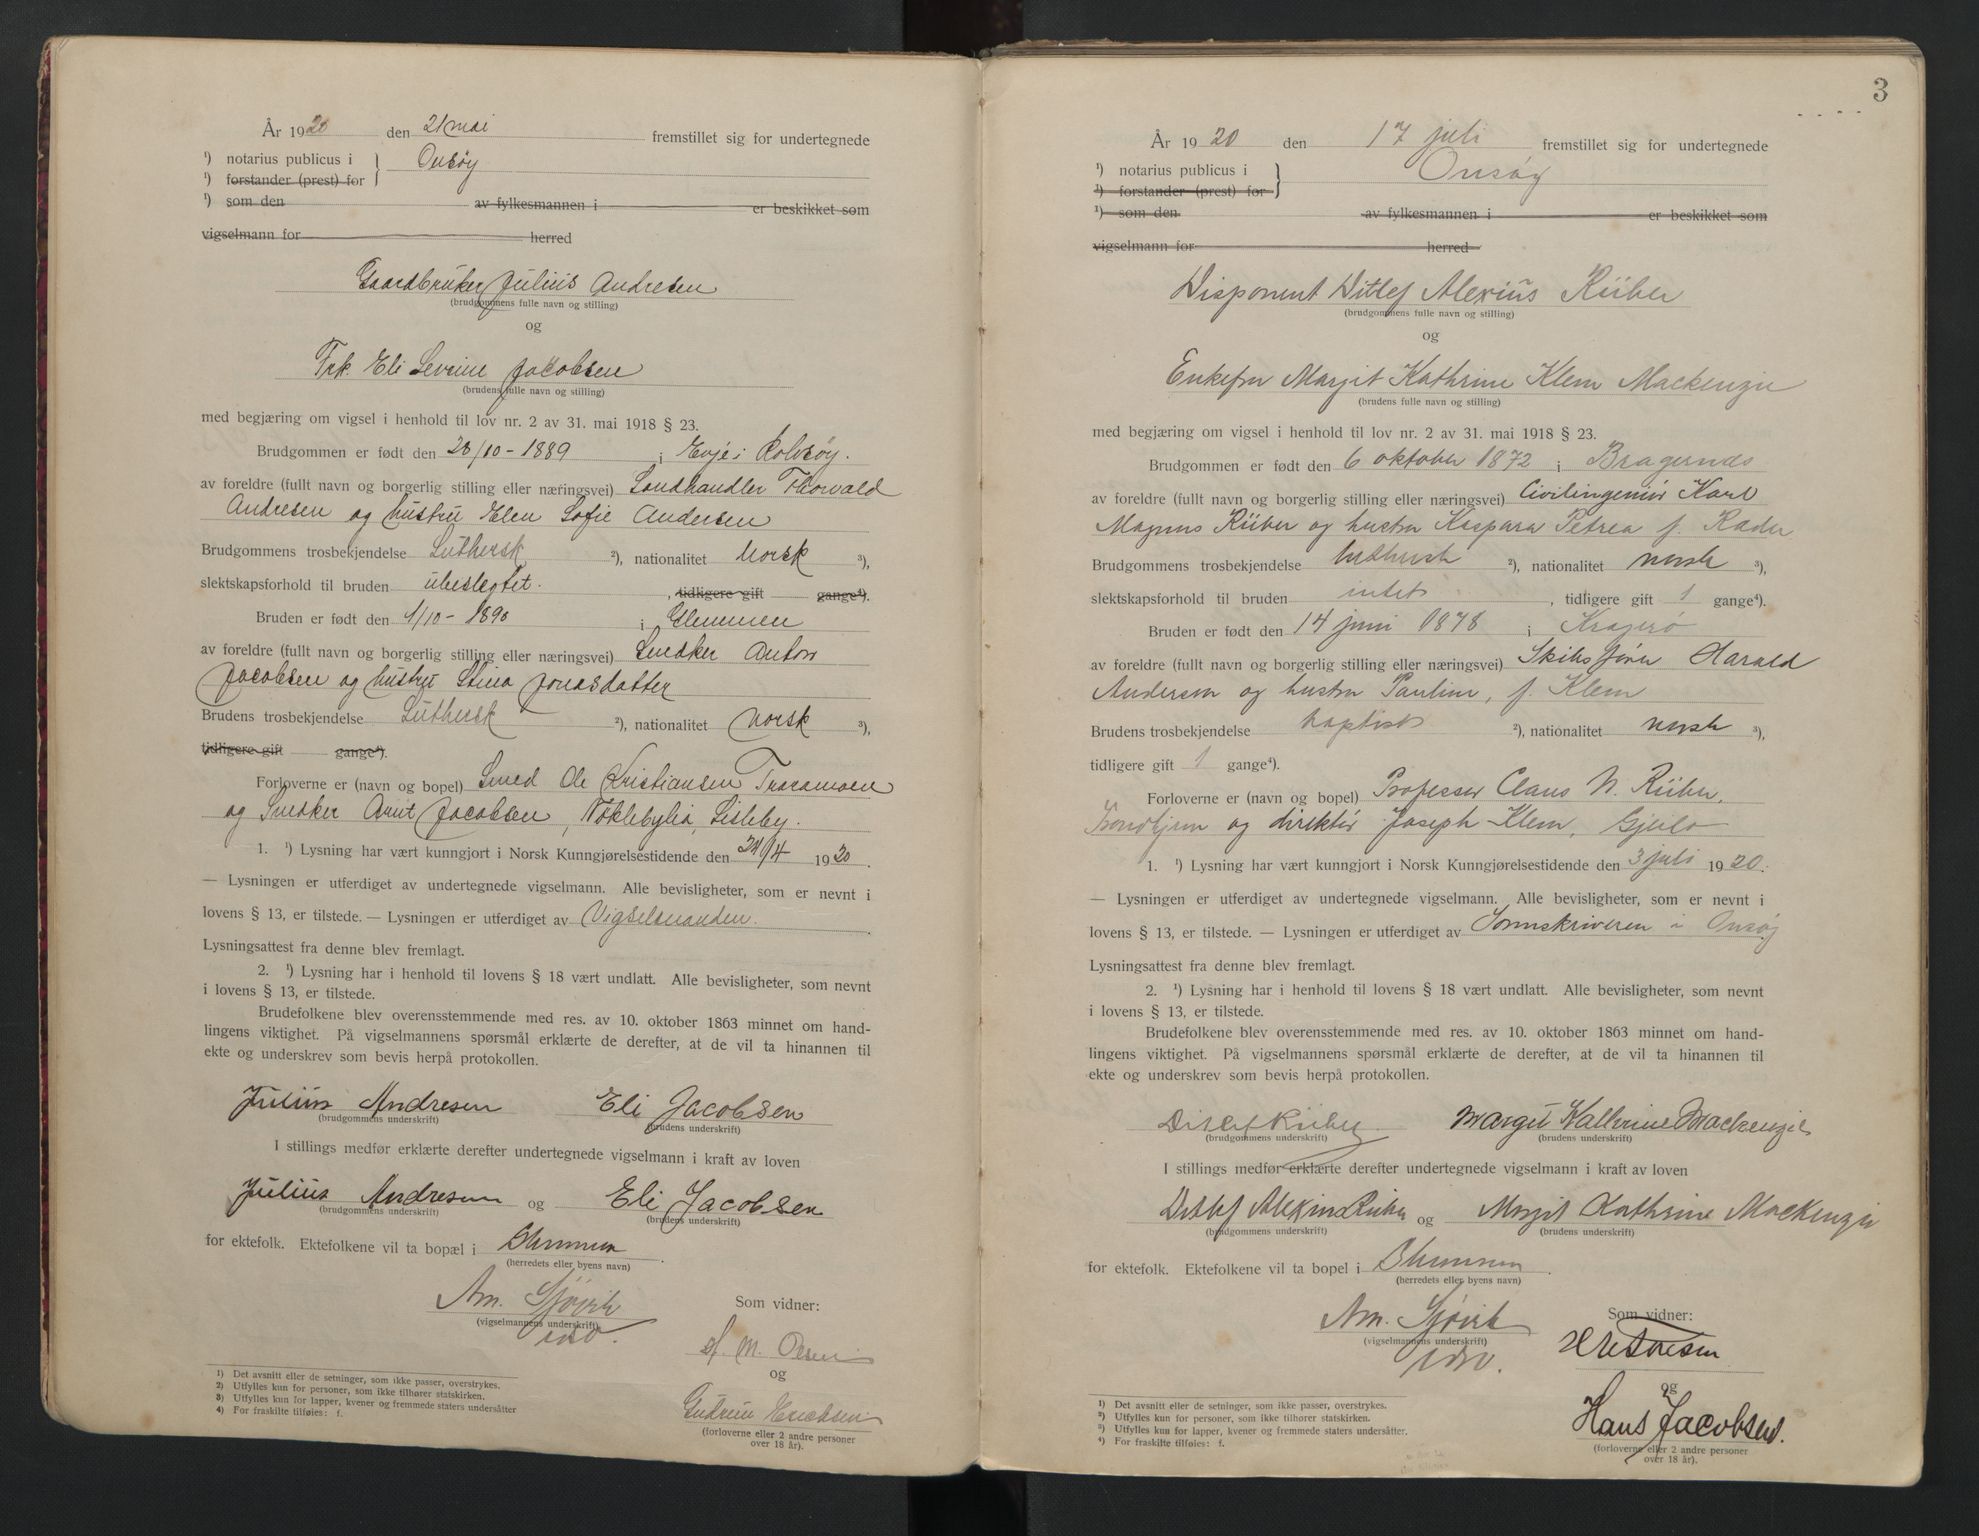 År 1920 den 21 mai fremstillet sig for undertegnede
¹) notarius publicus i } Onsøy
¹) forstander (prest) for
¹) som den av fylkesmannen i er beskikket som
vigselmann for herred
Gaardbruker Julius Andresen
(brudgommens fulle navn og stilling)
og
Frk. Eli Sevrine Jacobsen
(brudens fulle navn og stilling)
med begjæring om vigsel i henhold til lov nr. 2 av 31. mai 1918 § 23.
Brudgommen er født den 20/10 - 1889 i Evje i Rolvsøy.
av foreldre (fullt navn og borgerlig stilling eller næringsvei) Landhandler Thorvald
Andresen og hustru Elen Sofie Andersen
Brudgommens trosbekjendelse Luthersk ²), nationalitet Norsk ³),
slektskapsforhold til bruden ubeslegtet. , tidligere gift gange⁴).
Bruden er født den 1/10 - 1890 i Glemmen
av foreldre (fullt navn og borgerlig stilling eller næringsvei) Snedker Anton
Jacobsen og hustru Stina Jonasdatter
Brudens trosbekjendelse Luthersk ²), nationalitet norsk ³),
tidligere gift gange⁴).
Forloverne er (navn og bopel) Smed Ole Kristiansen Traramoen
og Snedker Arnt Jacobsen, Nøklebylia, Lisleby.
1. ¹) Lysning har vært kunngjort i Norsk Kunngjørelsestidende den 24/4 1920.
— Lysningen er utferdiget av undertegnede vigselmann. Alle bevisligheter, som er nevnt i
lovens § 13, er tilstede. — Lysningen er utferdiget av Vigselsmanden.
Lysningsattest fra denne blev fremlagt.
2. ¹) Lysning har i henhold til lovens § 18 vært undlatt. Alle bevisligheter, som nevnt
i lovens § 13, er tilstede.
Brudefolkene blev overensstemmende med res. av 10. oktober 1863 minnet om hand-
lingens viktighet. På vigselmannens spørsmål erklærte de derefter, at de vil ta hinannen til
ekte og underskrev som bevis herpå protokollen.
Julius Andresen Eli Jacobsen
(brudgommens underskrift) (brudens underskrift)
I stillings medfør erklærte derefter undertegnede vigselmann i kraft av loven
Julius Andresen og Eli Jacobsen
(brudgommens underskrift) (brudens underskrift)
for ektefolk. Ektefolkene vil ta bopæl i Glemmen
(herredets eller byens navn)
Am. Sjøvik Som vidner:
(vigselmannens underskrift)
H. M. Olsen
og
Gudrun Erichsen
(forloverne eller 2 andre personer
over 18 år).
1) Det avsnitt eller de setninger, som ikke passer, overstrykes.
2) Utfylles kun for personer, som ikke tilhører statskirken.
3) Utfylles kun for lapper, kvener og fremmede staters undersåtter
4) For fraskilte tilføies: f.
3
År 1920 den 17 juli fremstillet sig for undertegnede
¹) notarius publicus i } Onsøy
¹) forstander (prest) for
¹) som den av fylkesmannen i er beskikket som
vigselmann for herred
Disponent Ditlef Alexius Rüber
(brudgommens fulle navn og stilling)
og
Enkefru Margit Kathrine Klem Mackenzie
(brudens fulle navn og stilling)
med begjæring om vigsel i henhold til lov nr. 2 av 31. mai 1918 § 23.
Brudgommen er født den 6 oktober 1872 i Bragernes
av foreldre (fullt navn og borgerlig stilling eller næringsvei) Civilingeniør Karl
Magnus Rüber og hustru Kaspara Petrea f. Rader
Brudgommens trosbekjendelse luthersk ²), nationalitet norsk ³),
slektskapsforhold til bruden intet , tidligere gift 1 gange⁴).
Bruden er født den 14 juni 1878 i Kragerø
av foreldre (fullt navn og borgerlig stilling eller næringsvei) Skibsfører Harald
Anderson og hustru Pauline, f. Klem
Brudens trosbekjendelse baptist ²), nationalitet norsk ³),
tidligere gift 1 gange⁴).
Forloverne er (navn og bopel) Professor Claus N. Rüber,
Trondhjem og direktør Joseph Klem, Gjeilo
1. ¹) Lysning har vært kunngjort i Norsk Kunngjørelsestidende den 3 juli 1920.
— Lysningen er utferdiget av undertegnede vigselmann. Alle bevisligheter, som er nevnt i
lovens § 13, er tilstede. — Lysningen er utferdiget av Sorenskriveren i Onsøy
Lysningsattest fra denne blev fremlagt.
2. ¹) Lysning har i henhold til lovens § 18 vært undlatt. Alle bevisligheter, som nevnt
i lovens § 13, er tilstede.
Brudefolkene blev overensstemmende med res. av 10. oktober 1863 minnet om hand-
lingens viktighet. På vigselmannens spørsmål erklærte de derefter, at de vil ta hinannen til
ekte og underskrev som bevis herpå protokollen.
Ditlef Rüber Margit Kathrine Mackenzie
(brudgommens underskrift) (brudens underskrift)
I stillings medfør erklærte derefter undertegnede vigselmann i kraft av loven
Ditlef Alexius Rüber og Margit Kathrine Mackenzie
(brudgommens underskrift) (brudens underskrift)
for ektefolk. Ektefolkene vil ta bopel i Glemmen.
(herredets eller byens navn)
Am. Sjøvik Som vidner:
(vigselmannens underskrift)
og
Hans Jacobsen.
(forloverne eller 2 andre personer
over 18 år).
¹) Det avsnitt eller de setninger, som ikke passer, overstrykes.
²) Utfylles kun for personer, som ikke tilhører statskirken.
³) Utfylles kun for lapper, kvener og fremmede staters undersåtter.
⁴) For fraskilte tilføies: f.